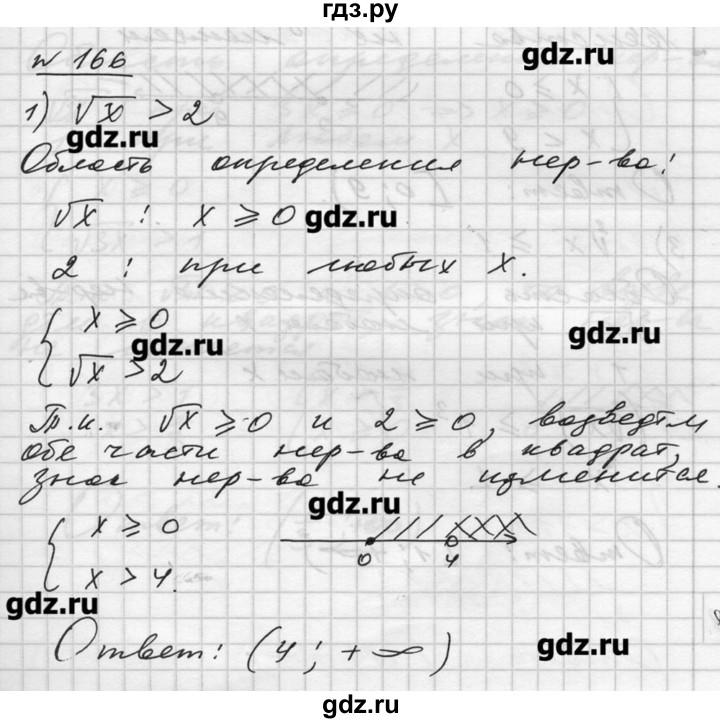 гдз.ру
gdz.ru
№ 166
1) √x > 2
gdz.ru
Область определения нер-ва:
√x : x ⩾ 0 gdz.ru
2 : при любых x.
{ x ⩾ 0
gdz.ru gdz.ru
√x > 2
Т.к. √x ⩾ 0 и 2 ⩾ 0, возведём
обе части нер-ва в квадрат,
знак нер-ва не изменится.
gdz.ru
{ x ⩾ 0
x > 4.
0 4
gdz.ru
Ответ: (4; +∞) gdz.ru
gdz.ru